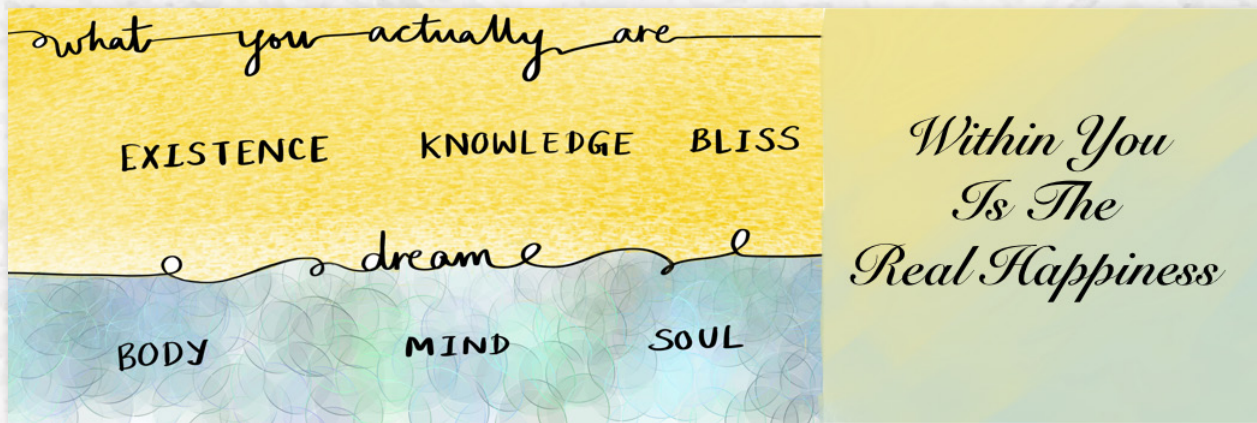 what you actually are
EXISTENCE KNOWLEDGE BLISS
dream
BODY MIND SOUL
Within You
Is The
Real Happiness